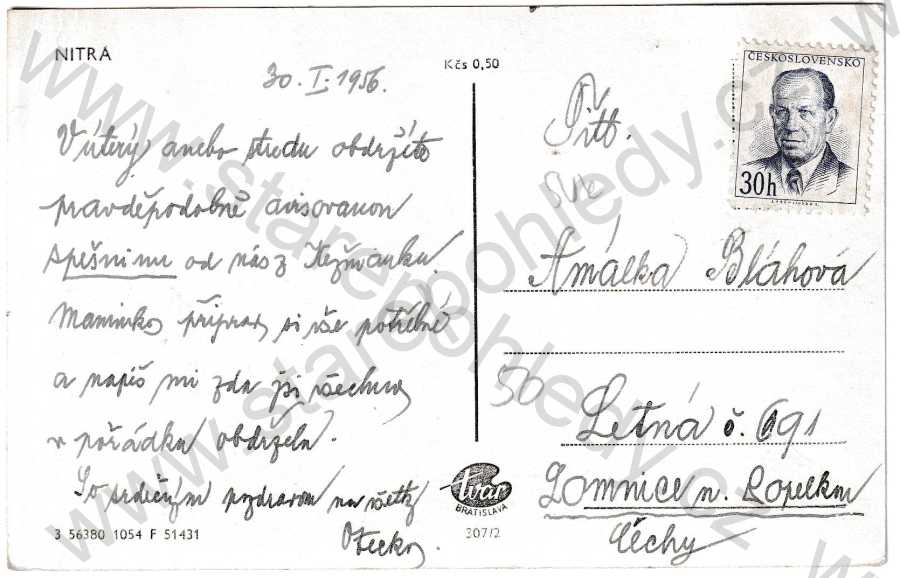 NITRA
Kčs 0,50
ČESKOSLOVENSKO
30h
30. I. 1956.
V úterý anebo středu obdržíte
pravděpodobně avisovanou
spěšninu od nás z Kežmarku.
Maminko, připrav si vše potřebné
a napiš mi zda jsi všechno
v pořádku obdržela.
So srdečným pozdravom na všetky
Otecko.
Amálka Bláhová
50
Letná č. 691
Lomnice n. Popelkou
Čechy
tvar
BRATISLAVA
307/2
3 56380 1054 F 51431
www.starepohledy.cz